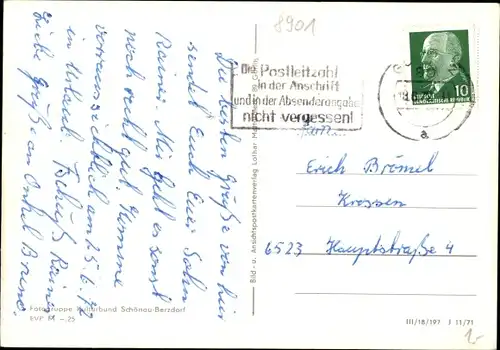 8901
Die besten Grüße von hier
sendet Euch Euer Sohn
Rainer. Mir geht es sonst
noch recht gut. Komme
voraussichtlich am 25.6.72
in Urlaub. Tschüß Rainer
Liebe Grüße an Onkel Bruno.
Fotogruppe Kulturbund Schönau-Berzdorf
EVP M -,25
Bild- u. Ansichtspostkartenverlag Lothar
Die Postleitzahl
in der Anschrift
und in der Absenderangabe
nicht vergessen!
10
DEUTSCHE DEMOKRATISCHE REPUBLIK
18.
a
Erich Brömel
Krossen
6523 Hauptstraße 4
III/18/197 J 11/71